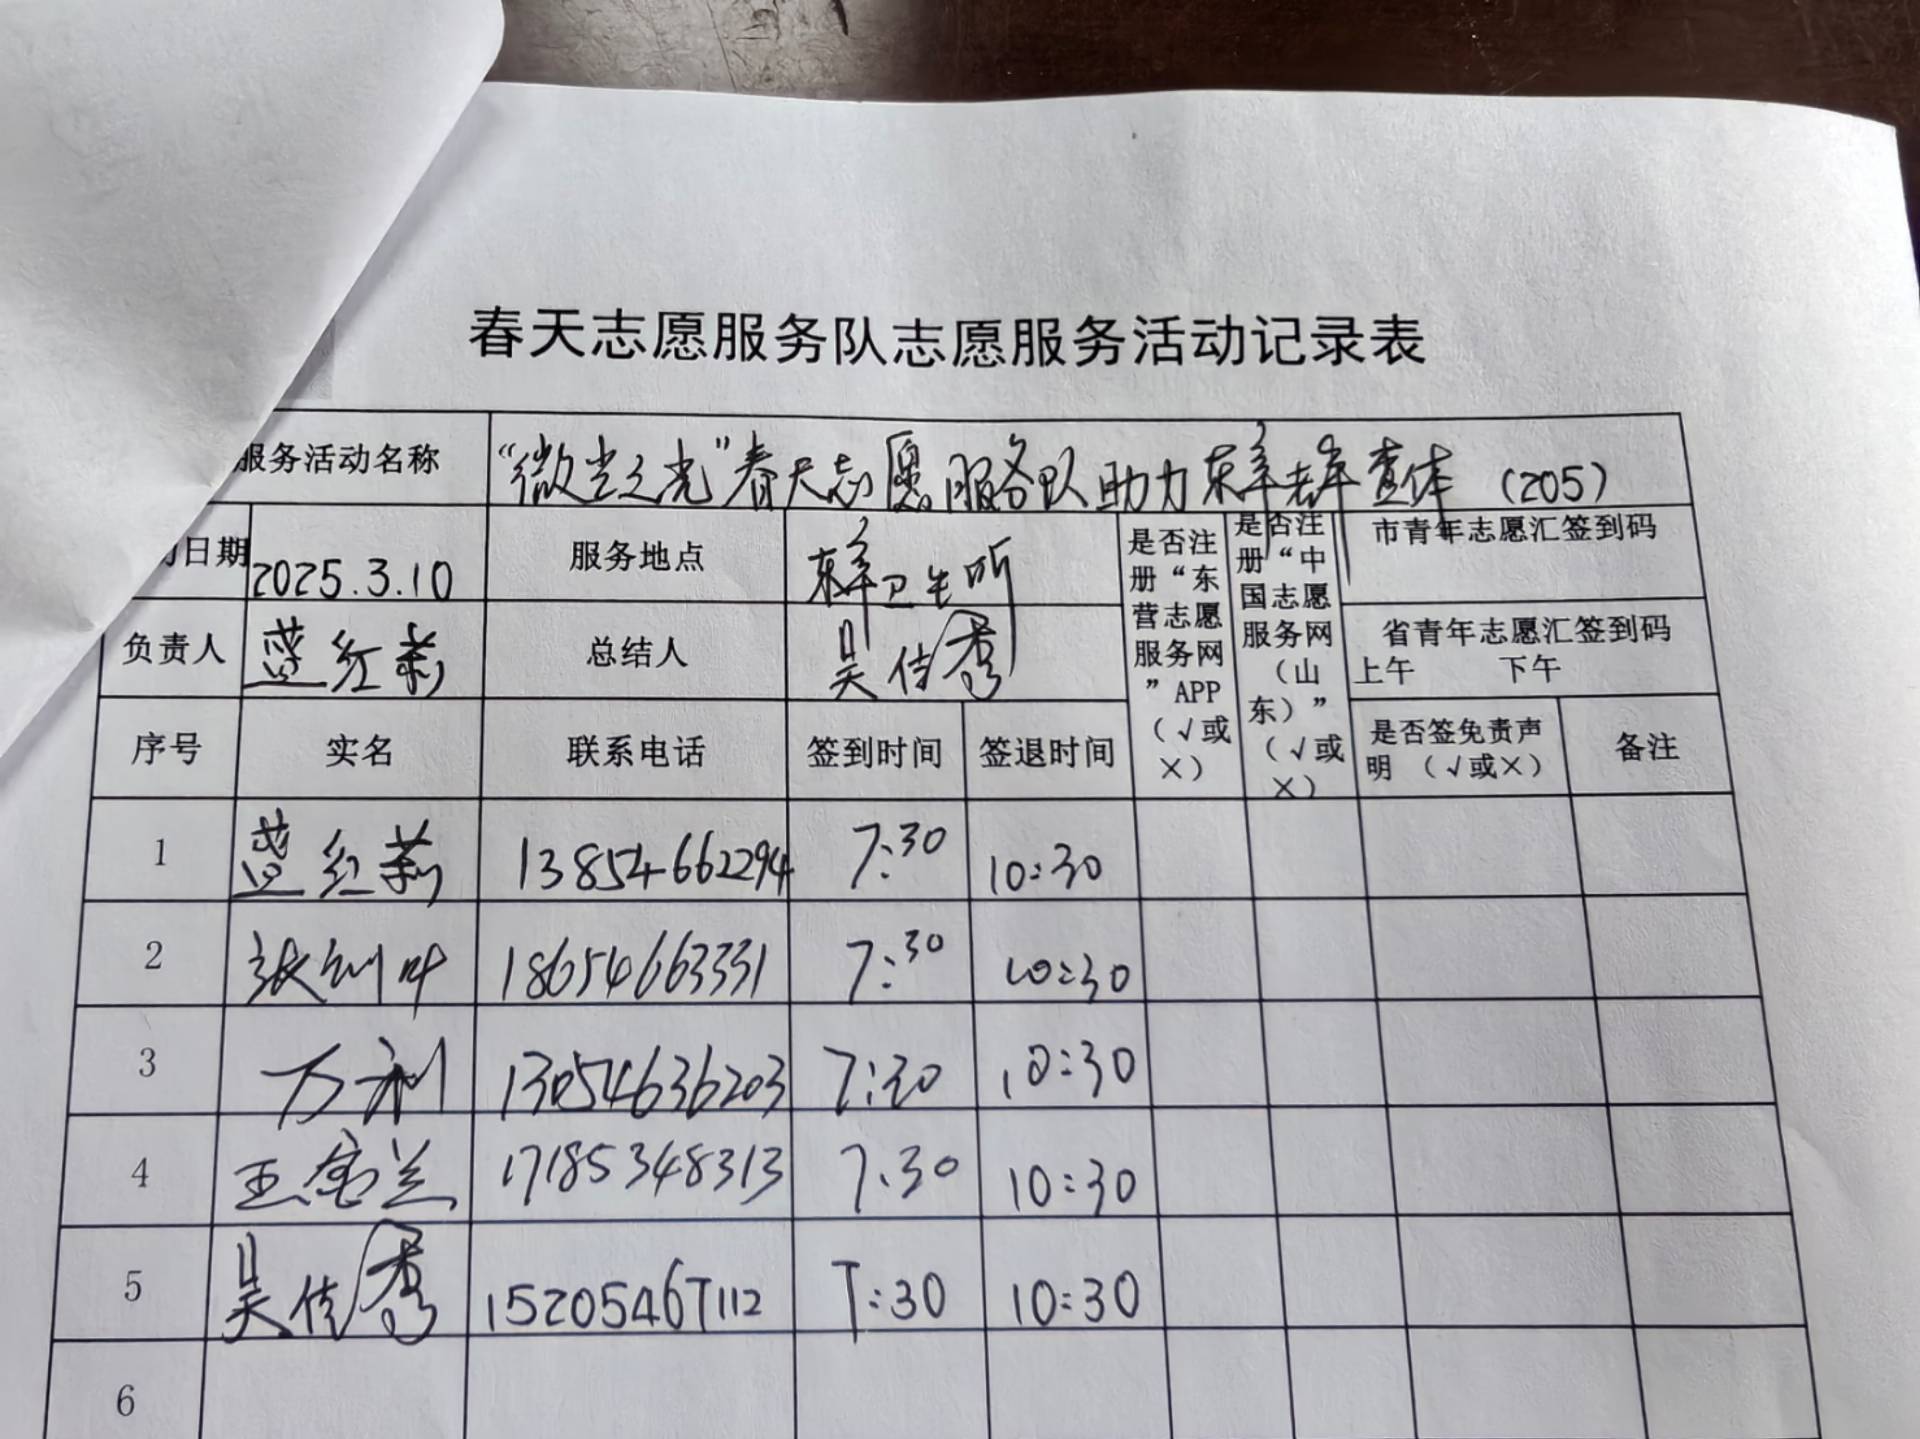 春天志愿服务队志愿服务活动记录表
服务活动名称 “微尘之光”春天志愿服务队助力东辛老年查体（205）
日期 2025.3.10 服务地点 东辛卫生所
是否注册“东营志愿服务网”APP（√或×）
是否注册“中国志愿服务网（山东）”（√或×）
市青年志愿汇签到码
负责人 蓝红莉 总结人 吴佳秀
省青年志愿汇签到码
上午 下午
序号 实名 联系电话 签到时间 签退时间 是否签免责声明（√或×） 备注
1 蓝红莉 13854662294 7:30 10:30
2 18654663331 7:30 10:30
3 万利 13054636203 7:30 10:30
4 王雪兰 17185348313 7:30 10:30
5 吴佳秀 15205467112 7:30 10:30
6